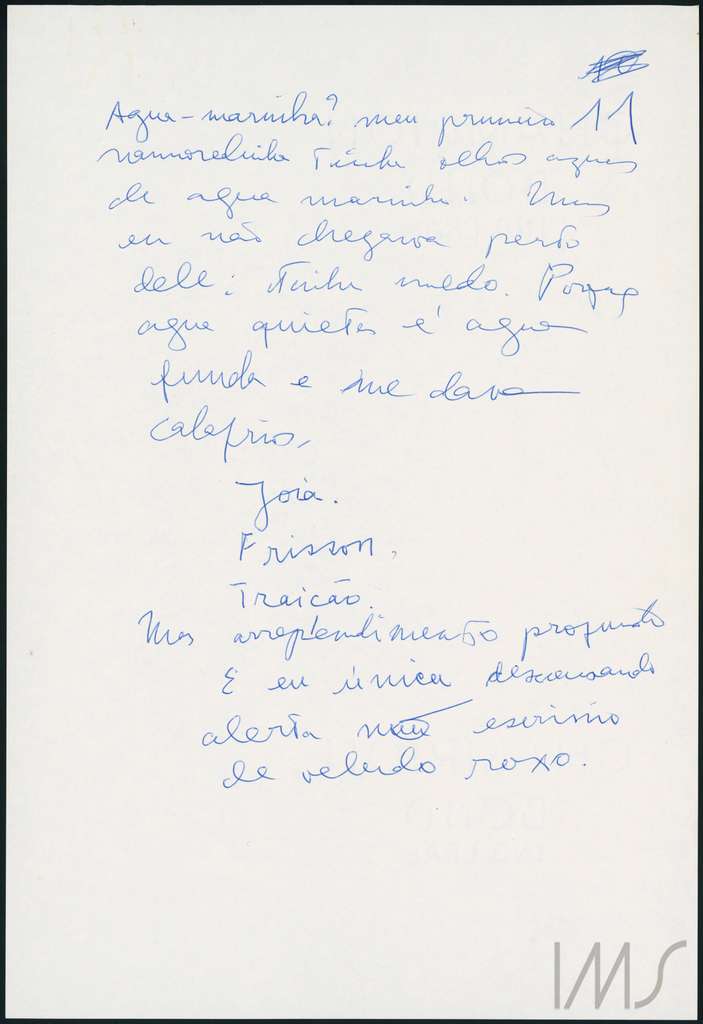 11
Agua-marinha? meu primeiro
namoradinho tinha olhos azues
de agua marinha. Mas
eu não chegava perto
dele: tinha medo. Porque
agua quieta é agua
funda e me dava
calafrios.
Joia.
Frisson.
Traicão.
Mas arrependimento profundo
E eu única descansando
alerta no escrinio
de veludo roxo.
IMS